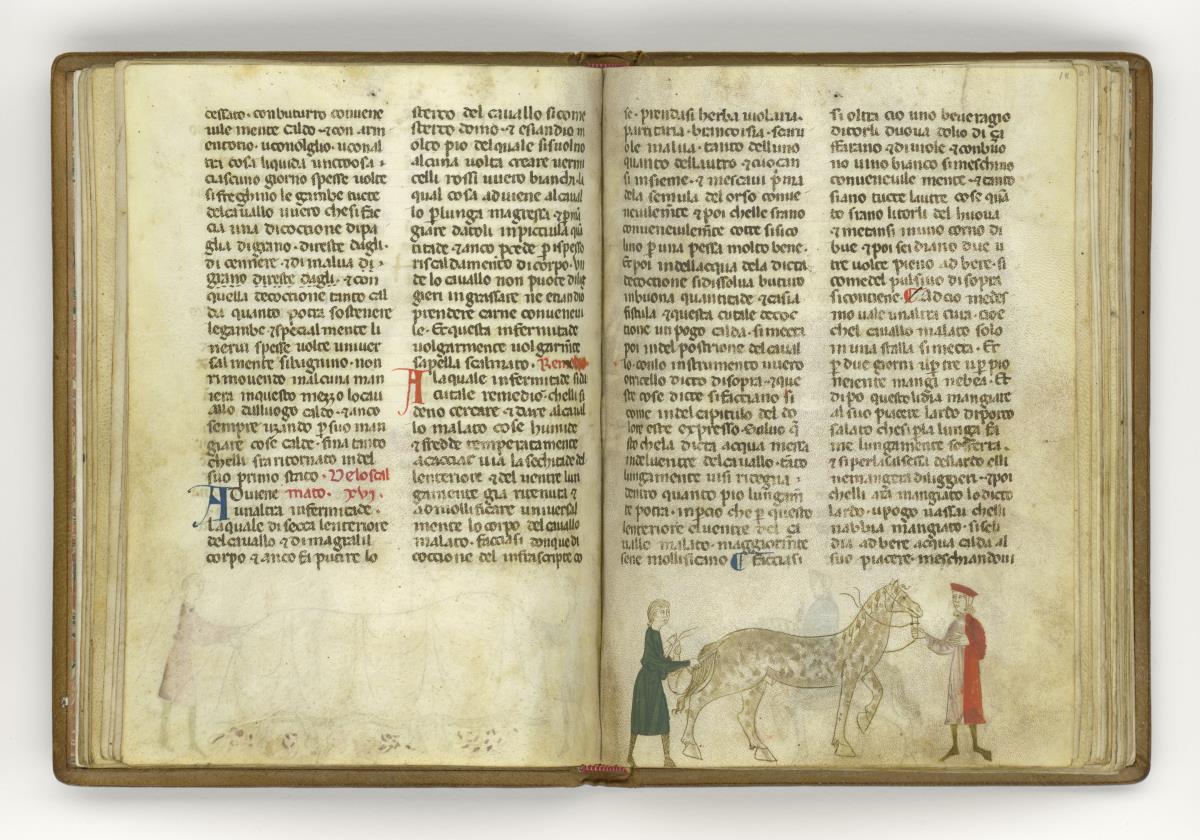 cessato · con buturro convene
vile mente caldo · ⁊ con arm
ento
tra cosa liquida unctuosa ·
ciascuno giorno spesse volte
si freghino le gambe tucte
del cavallo
cia una decoctione di pa
glia di grano · di reste dagli ·
di cennere · ⁊ di malva di ·
grano di reste dagli · ⁊ con
quella decoctione tanto cal
da quanto potra sostenere
le gambe · ⁊ spetial mente li
nervi spesse volte univer
sal mente si bagnino · non
rimovento in alcuna man
iera in questo mezzo lo cav
allo dal luogo caldo · ⁊ anco
sempre usando per suo man
giare cose calde · fina tanto
chelli sia ritornato in del
suo primo stato · De lo scal
Adviene mato · xvi ·
unaltra infermitade ·
la quale di secca lenteriore
del cavallo · ⁊ di magra il
corpo ⁊ anco fa putire lo
sterco del cavallo si come
sterco domo · ⁊ esiandio m
olto pio del quale si suol no
alcuna volta creare verm
celli rossi uvero bianchi · la
qual cosa adviene al caval
lo p lunga magressa ⁊
giare datoli in picciula qu
titade · ⁊ anco pcede p ispesso
riscaldamento di corpo ·
de lo cavallo non puote
gieri in grassare ne etiandio
prendere carne conveneu
le · Et questa infermitade
volgarmente
sapella scalmato · Remedio
A la quale infermitade si da
cutale remedio · chelli si
deno cercare ⁊ dare al caval
lo malato cose humide
⁊ fredde temperatamente
a cacciar via la sechitade del
lenteriore ⁊ del ventre lun
gamente gia ritenuta ⁊
ad mollificare universal
mente lo corpo del cavallo
malato · facciasi donque di
coctione del infrascripte co
se · prendasi herba violaria ·
paritaria · brancorsia ·
ole malva · tanto delluno
quanto dellautro · ⁊ cuocan
si insieme · ⁊ mescavi
dela semula del orso conve
nevilemte ⁊ poi chelle siano
convenevilemte cotte si si co
lino p una pessa molto bene ·
Et poi in dellacqua dela dicta
decoctione si dissolva buturo
in buona quantitade ⁊ casia
fistula ⁊ questa cutale decoc
tione un pogo calda · si mecta
poi in del postrione del caval
lo · conlo instrumento uvero
oricello dicto di sopra · ⁊ que
ste cose dicte si facciano si
come in del capitulo del do
lore este expresso · Et olio
sto che la dicta acqua messa
in del ventre del cavallo · tanto
lungamente vi si ritegna ·
dentro quanto pio lungam
te potra · impcio che p questo
lenteriore el ventre del ca
vallo malato · maggiormte
sene mollificano ¶ Facciasi
si oltra cio uno beveragio
di torli duova dolio di ça
ffarano · ⁊ di viole ⁊ con buo
no vino bianco si meschino
convenevile mente · ⁊ tanto
siano tucte lautre cose qua
to siano li torli del huova
⁊ metansi in uno corno di
bue ⁊ poi sei diano due u
tre volte pieno ad bere · si
come del pulsivo di sopra
si contiene · ¶ Ad cio medes
mo vale unaltra cura · cioe
chel cavallo malato solo
in una stalla si mecta · Et
p due giorni
neiente mangi ne bea · Et
dipo questo li dia mangiare
al suo piacere lardo di porco
salato che si p la lunga fa
me lungamente sofferta ·
⁊ si per la salsessa del lardo elli
ne mangera di liggieri · ⁊ poi
chelli ara mangiato lo dicto
lardo · u pogo u assai chelli
nabbia mangiato · si seli
dia ad bere acqua calda al
suo piacere · meschiandovi